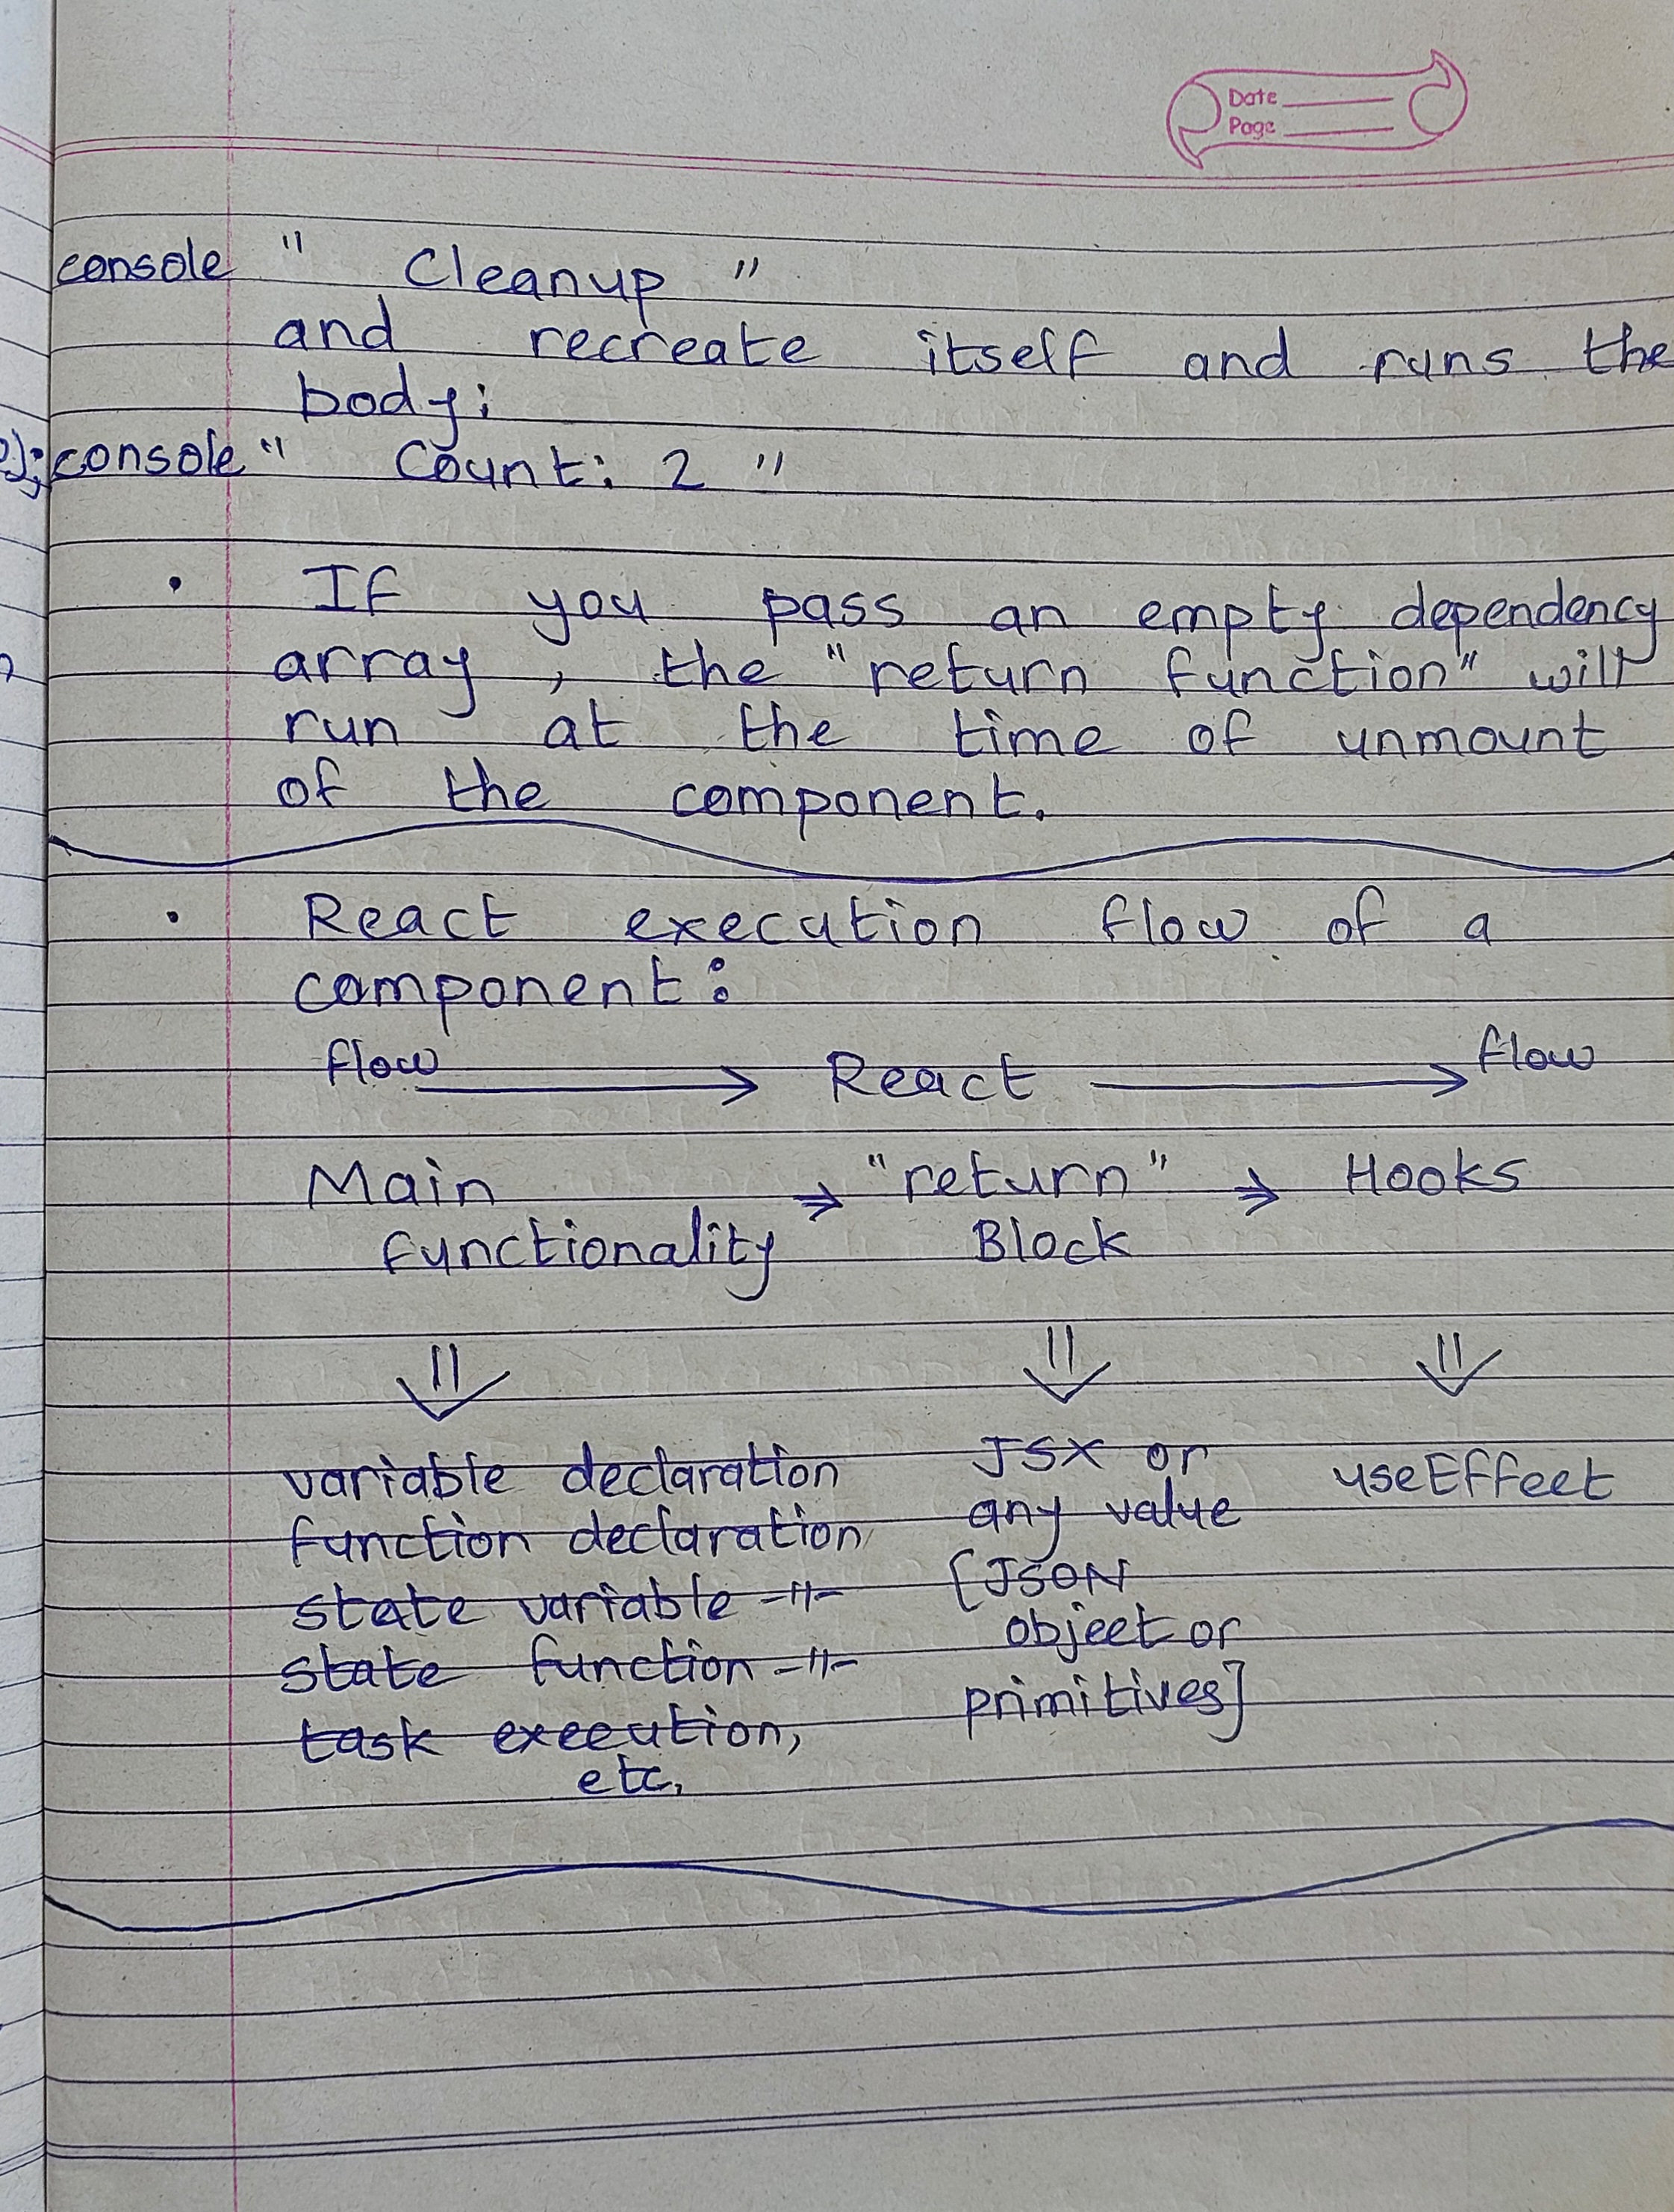 Date
Page
console " Cleanup "
and recreate itself and runs the
body;
console " Count: 2 "
• If you pass an empty dependency
array, the "return function" will
run at the time of unmount
of the component.
• React execution flow of a
component:
flow → React → flow
Main ⇒ "return" ⇒ Hooks
functionality Block
⇓ ⇓ ⇓
variable declaration
function declaration
state variable -11-
state function -11-
task execution,
etc.
JSX or
any value
[JSON
object or
primitives]
useEffect